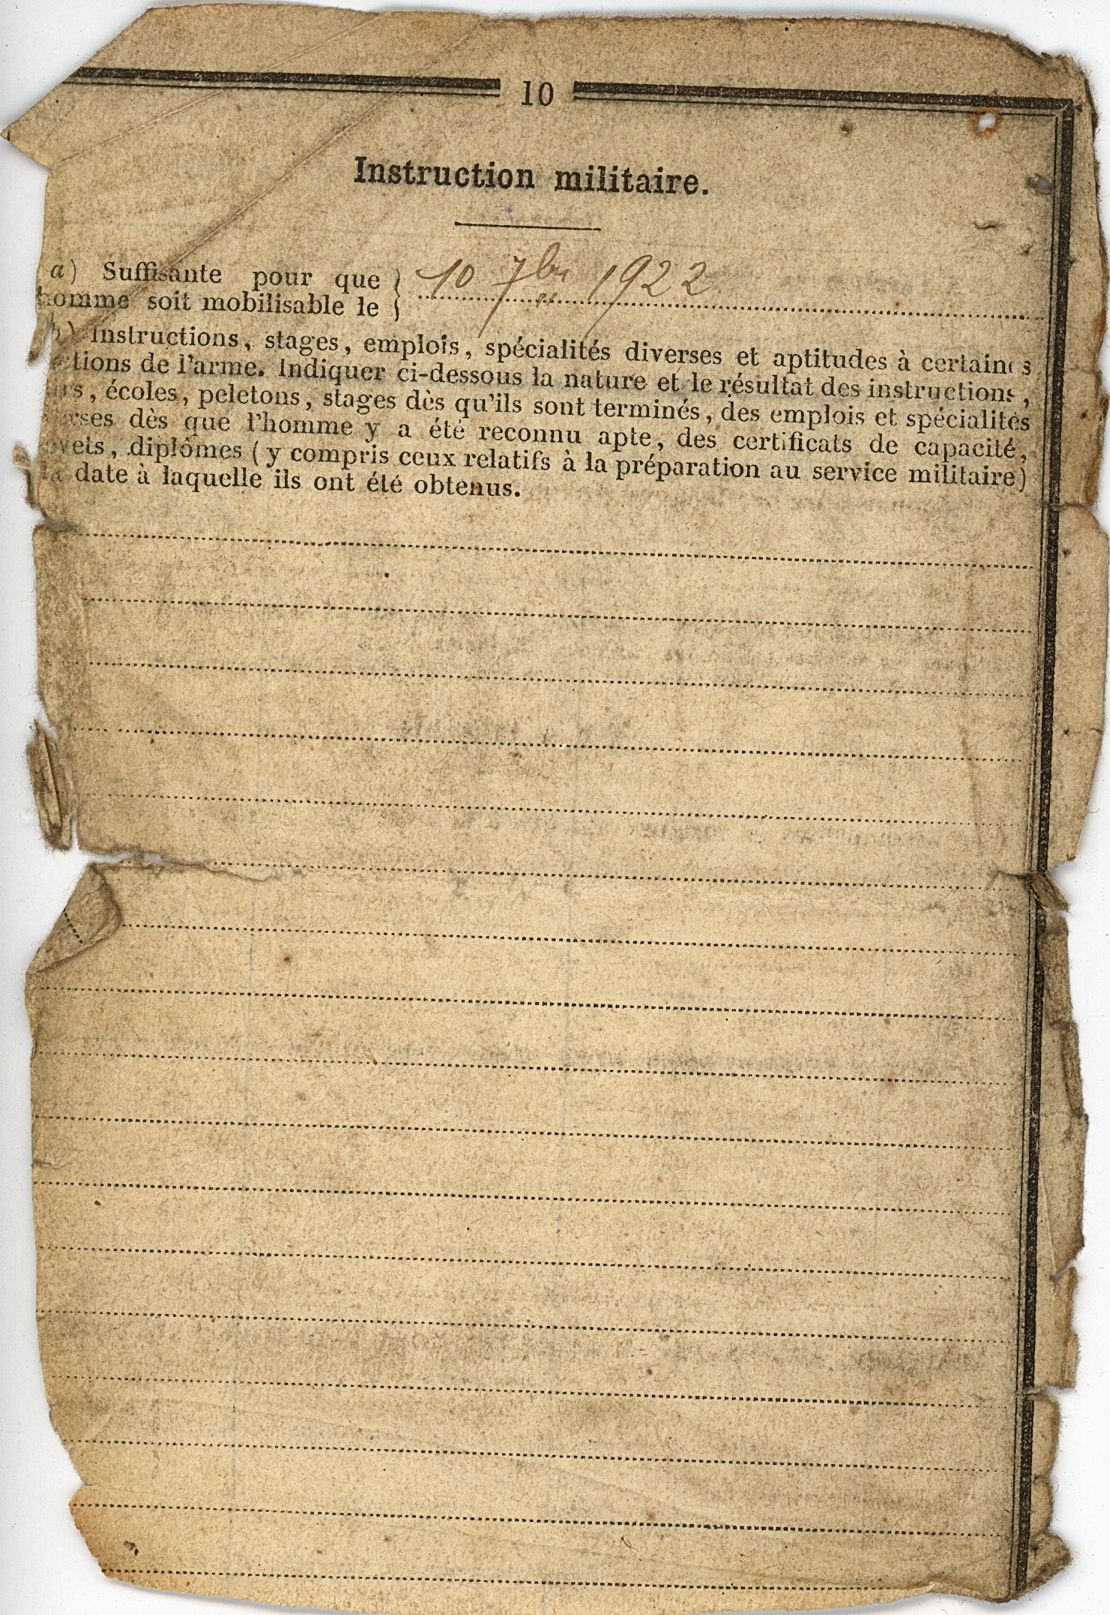 10
Instruction militaire.
a) Suffisante pour que } 10 7bre 1922
homme soit mobilisable le }
b) Instructions, stages, emplois, spécialités diverses et aptitudes à certaines
ctions de l'arme. Indiquer ci-dessous la nature et le résultat des instructions,
rs, écoles, pelotons, stages dès qu'ils sont terminés, des emplois et spécialités
erses dès que l'homme y a été reconnu apte, des certificats de capacité,
vets, diplômes (y compris ceux relatifs à la préparation au service militaire)
la date à laquelle ils ont été obtenus.